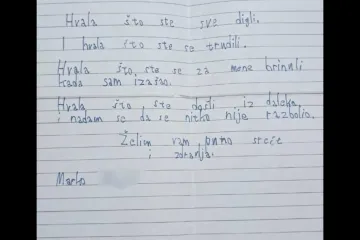 Hvala što ste sve digli.
I hvala što ste se trudili.
Hvala što ste se za mene brinuli
kada sam izašao.
Hvala što ste došli iz daleka
i nadam se da se nitko nije razbolio.
Želim vam puno sreće
i zdravlja.
Marko